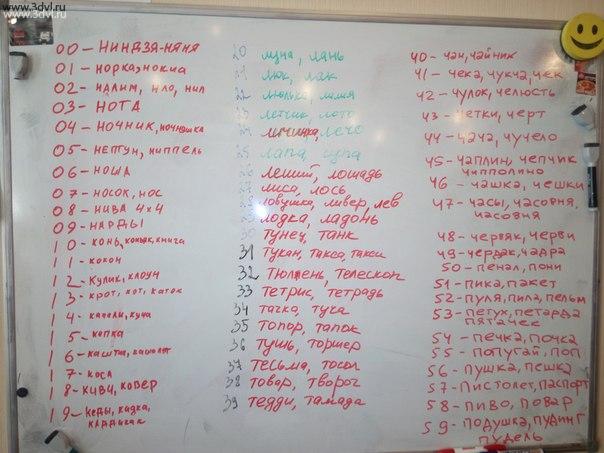 www.3dvl.ru
www.3dvl.ru
00 - НИНДЗЯ-НЯНЯ
01 - НОРКА, НОКИА
02 - НАЛИМ, НЛО, НИЛ
03 - НОТА
04 - НОЧНИК, НОЧНУШКА
05 - НЕПТУН, НИППЕЛЬ
06 - НОША
07 - НОСОК, НОС
08 - НИВА 4х4
09 - НАРДЫ
10 - КОНЬ, КОНЬЯК, КНИГА
11 - КОКОН
12 - КУЛИК, КЛОУН
13 - КРОТ, КОТ, КАТОК
14 - КАЧЕЛИ, КУЧА
15 - КЕПКА
16 - КАШТАН, КАШАЛОТ
17 - КОСА
18 - КИВИ, КОВЕР
19 - КЕДЫ, КАДКА,
КАРДИГАН
20 луна, лань
21 люк, лак
22 люлька, лилия
23 летчик, лото
24 личинка, лечо
25 лапа, лупа
26 леший, лошадь
27 лиса, лось
28 ловушка, ливер, лев
29 лодка, ладонь
30 тунец, танк
31 тукан, такса, такси
32 тюлень, телескоп
33 тетрис, тетрадь
34 тачка, туча
35 топор, тапок
36 тушь, торшер
37 тесьма, тосол
38 товар, творог
39 тедди, тамада
40 - ЧАН, ЧАЙНИК
41 - ЧЕКА, ЧУКЧА, ЧЕК
42 - ЧУЛОК, ЧЕЛЮСТЬ
43 - ЧЕТКИ, ЧЕРТ
44 - ЧАЧА, ЧУЧЕЛО
45 - ЧАПЛИН, ЧЕПЧИК
ЧИППОЛИНО
46 - ЧАШКА, ЧЕШКИ
47 - ЧАСЫ, ЧАСОВНЯ,
ЧАСОВНЯ
48 - ЧЕРВЯК, ЧЕРВИ
49 - ЧЕРДАК, ЧАДРА
50 - ПЕНАЛ, ПОНИ
51 - ПИКА, ПАКЕТ
52 - ПУЛЯ, ПИЛА, ПЕЛЬМ
53 - ПЕТУХ, ПЕТАРДА
ПЯТАЧЕК
54 - ПЕЧКА, ПОЧКА
55 - ПОПУГАЙ, ПОП
56 - ПУШКА, ПЕШКА
57 - ПИСТОЛЕТ, ПАСПОРТ
58 - ПИВО, ПОВАР
59 - ПОДУШКА, ПУДИНГ
ПУДЕЛЬ